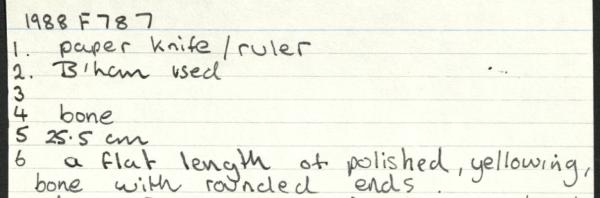 1988 F 787
1. paper knife / ruler
2. B'ham used
3
4 bone
5 25.5 cm
6 a flat length of polished, yellowing,
bone with rounded ends.